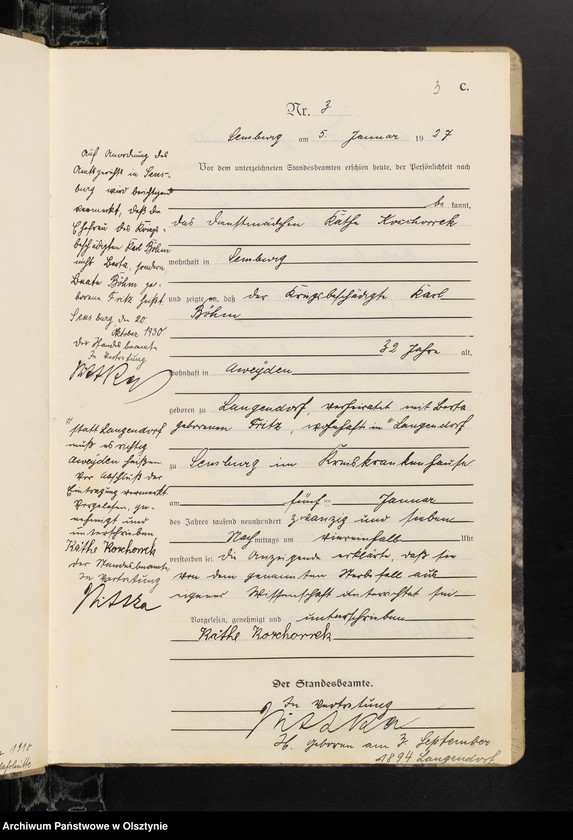 3 C.
Nr. 3
Sensburg am 5. Januar 1927
Vor dem unterzeichneten Standesbeamten erschien heute, der Persönlichkeit nach
be kannt,
das Dienstmädchen Käthe Koschorrek
wohnhaft in Sensburg
und zeigte an, daß der Kriegsbeschädigte Karl
Böhm
32 Jahre alt,
wohnhaft in Aweyden
geboren zu Langendorf, verheiratet mit Berta
geborenen Fritz, wohnhaft in Langendorf
zu Sensburg im Kreiskrankenhause
am fünf ten Januar
des Jahres tausend neunhundert zwanzig und sieben
Nach mittags um viereinhalb Uhr
verstorben sei. Die Anzeigende erklärte, daß sie
von dem genannten Sterbefall aus
eigener Wissenschaft unterrichtet sei
Vorgelesen, genehmigt und unterschrieben
Käthe Koschorrek
Der Standesbeamte.
In Vertretung
H. geboren am 3. September
1894 Langendorf
Auf Anordnung des
Amtsgerichts in Sens-
burg wird berichtigend
vermerkt, daß die
Ehefrau des Kriegs-
beschädigten Karl Böhm
nicht Berta, sondern
Beate Böhm ge-
borene Fritz heißt
Sensburg den 20.
Oktober 1930
Der Standesbeamte
In Vertretung
statt Langendorf
muß es richtig
Aweyden heißen
Vor Abschluß der
Eintragung vermerkt
Vorgelesen, ge-
nehmigt und
unterschrieben
Käthe Koschorrek
Der Standesbeamte
In Vertretung
1910
Archiwum Państwowe w Olsztynie